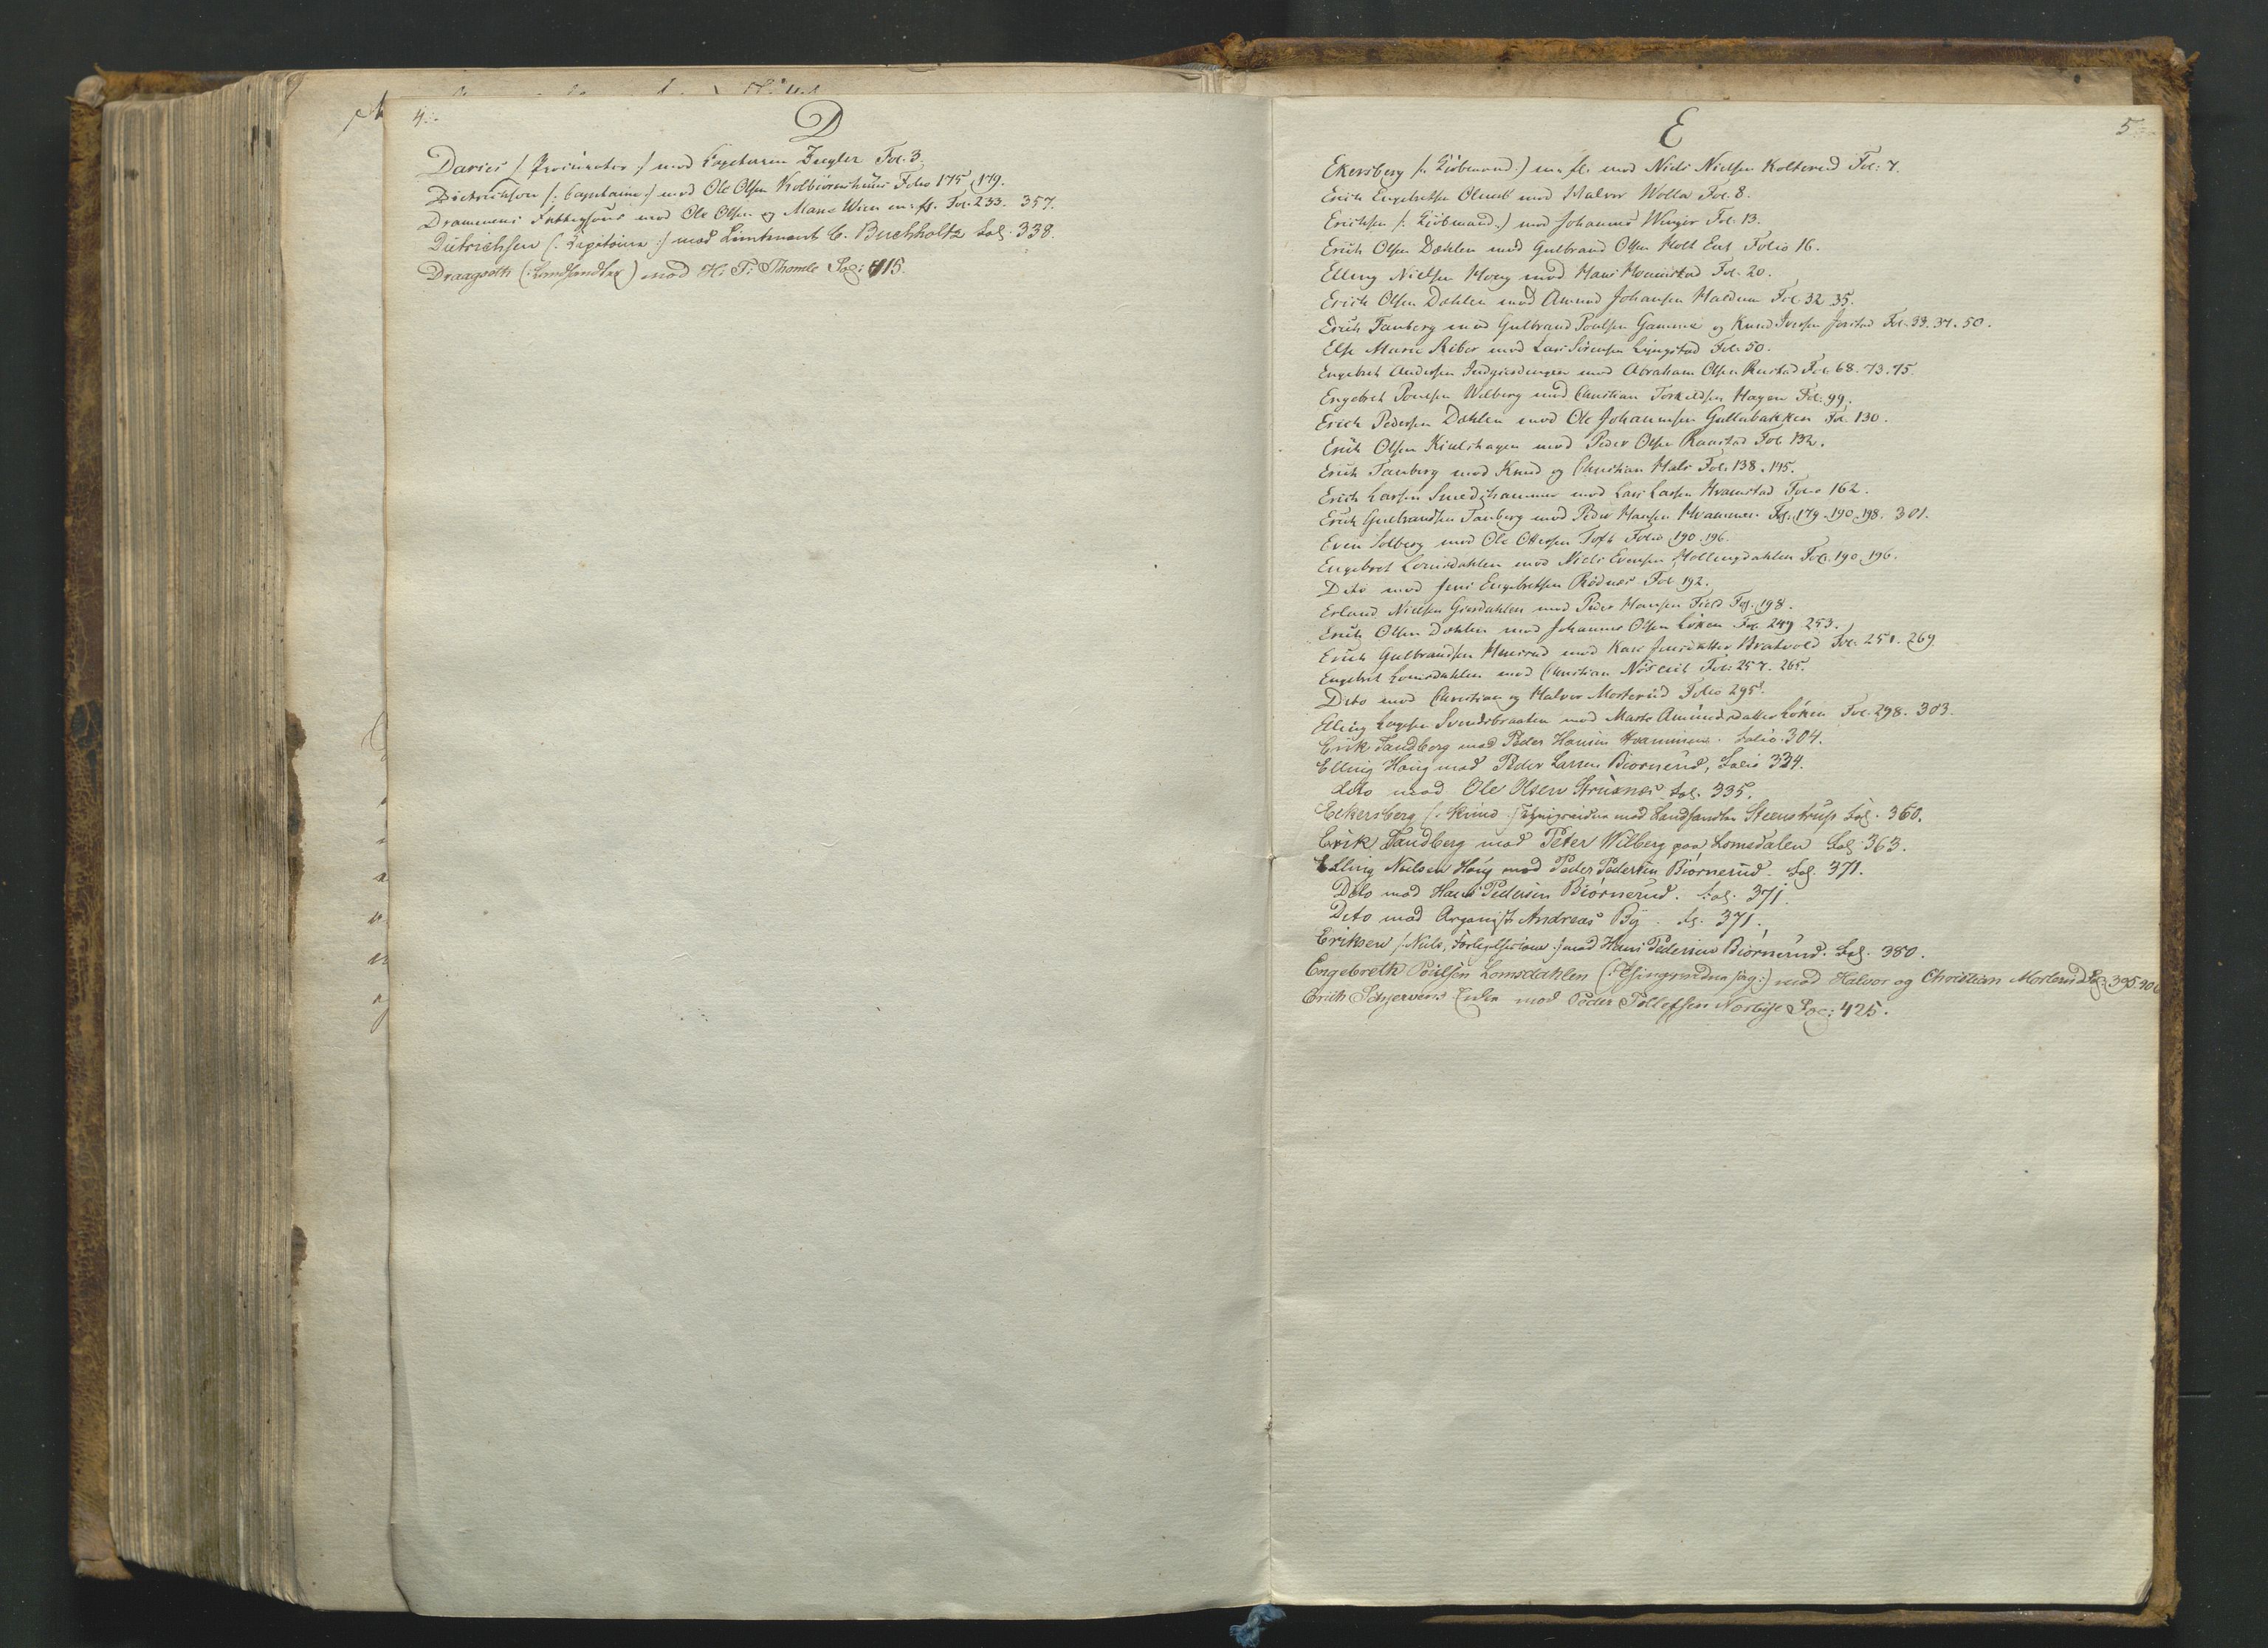 4.
D
Davies /: Procurator :/ mod Capitainen Ziegler Fol. 3.
Dietrichson /: Captaine :/ mod Ole Olsen Kolbiørnshuus Folio 175. 179.
Drammens Fattigfond mod Ole Olsen og Mans Wien m: fl. Fol. 233. 357.
Dietrichsen /: Kapitaine :/ mod Lieutenant C. Buchholtz Fol. 338.
Draagvolts (: Landhandler) mod H: T: Thomle Fol: 415.
E
5
Ekersberg /: Kiøbmand :/ m: fl. mod Niels Nielsen Kolterud Fol: 7.
Erich Engebretsen mod Halvor Wolla Fol. 8.
Erichsen /: Kiøbmand :/ mod Johannes Winger Fol. 13.
Erich Olsen Dæhlen mod Gulbrand Olsen Holt Eie Folio 16.
Elling Nielsen Houg mod Hans Hvamstad Fol. 20.
Erich Olsen Dæhlen mod Amund Johansen Haldum Fol. 32. 35.
Erich Tanberg mod Gulbrand Poulsen Gamme og Knud Iversen Fol. 33. 37. 50.
Else Marie Riber mod Lars Sørensen Lyngstad Fol. 50.
Engebret Andersen mod Abraham Olsen Rustad Fol. 68. 73. 75.
Engebret Poulsen Wilberg mod Christian Torkildsen Hagen Fol. 99.
Erich Pedersen Dæhlen mod Ole Johannesen Gullabakken Fol. 130.
Erich Olsen mod Peder Olsen Raastad Fol. 132.
Erich Tanberg mod Knud og Christian Hals Fol. 138. 145.
Erich Larsen Smedshammer mod Lars Larsen Hvamstad Folio 162.
Erich Gulbrandsen Tanberg mod Peder Hansen Hvammen Fol. 179. 190. 198. 301.
Even Solberg mod Ole Ottersen Toft Folio 190. 196.
Engebret Lomsdahlen mod Niels Evensen Hollingdahlen Fol. 190. 196.
Dito mod Jens Engebretsen Rødnæs Fol. 192.
Erland Nielsen Giersdahlen mod Peder Hansen Field Fol. 198.
Erich Olsen Dæhlen mod Johannes Olsen Løken Fol. 249. 253.
Erich Gulbrandsen mod Kari Jensdatter Bratvold Fol. 251. 269.
Engebret Lomsdahlen mod Christian Fol: 257. 265.
Dito mod Christian og Halvor Morterud Folio 295.
Elling Svendsbraaten mod Marte Amundsdatter Løken Fol. 298. 303.
Erik Tandberg mod Peder Hansen Hvammen. Folio 304.
Elling Houg mod Peder Larsen Biørnerud, Folio 334.
dito mod Ole Olsen Struxnæs. Fol. 335.
Eckersberg /: Knud :/ mod Landhandler Steenstrup Fol. 360.
Erik Tandberg mod Peter Wilberg paa Lomsdalen Fol. 363.
Elling Nielsen Houg mod Peder Pedersen Biørnerud. Fol. 371.
Dito mod Hans Pedersen Biørnerud. Fol. 371.
Dito mod Organist Andreas By. Fol. 371.
Eriksen /: Niels, :/ mod Hans Pedersen Biørnerud. Fol. 380.
Engebreth Poulsen Lomsdahlen mod Halvor og Christian Morterud Fol:
Erich Enke mod Peder Tollefsen Nordbye Fol: 425.